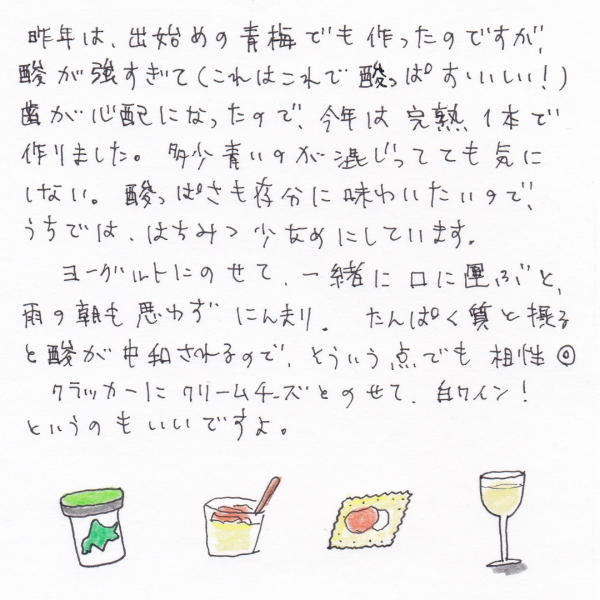 昨年は、出始めの青梅でも作ったのですが、
酸が強すぎて(これはこれで酸っぱおいしい!)
歯が心配になったので、今年は完熟1本で
作りました。多少青いのが混じってても気に
しない。酸っぱさも存分に味わいたいので、
うちでは、はちみつ少なめにしています。
ヨーグルトにのせて、一緒に口に運ぶと、
雨の朝も思わずにんまり。たんぱく質と摂る
と酸が中和されるので、そういう点でも相性◎
クラッカーにクリームチーズとのせて、白ワイン!
というのもいいですよ。